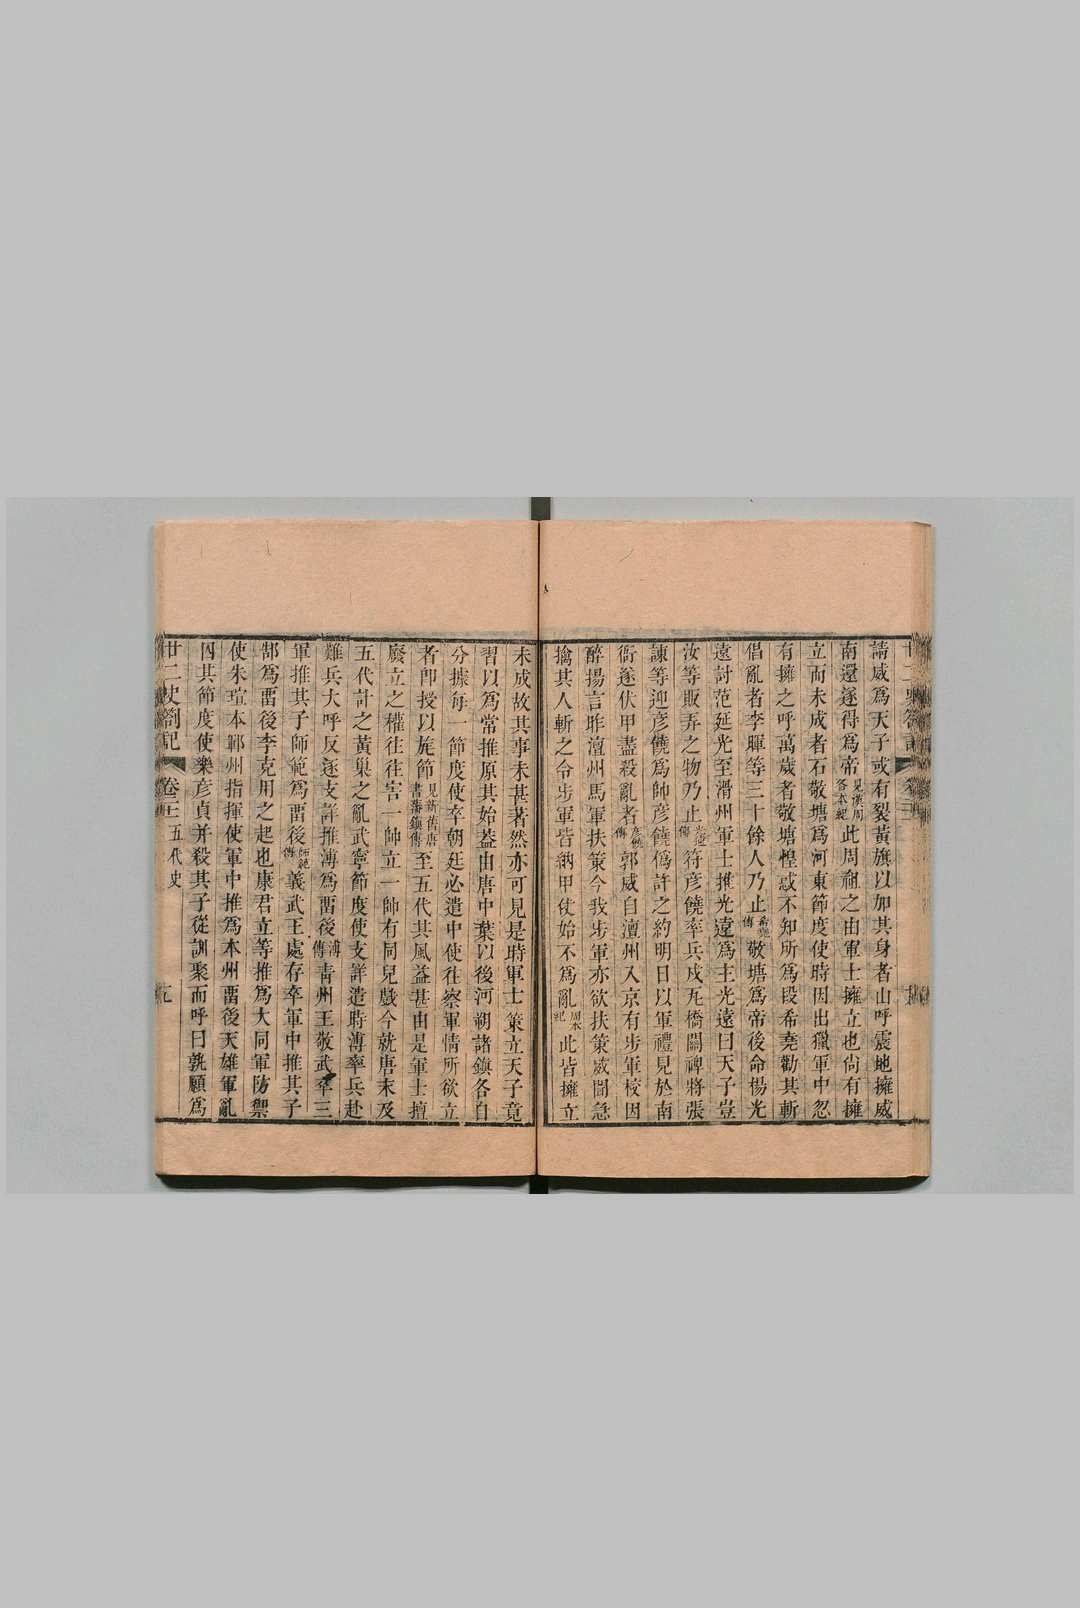 請威爲天子或有裂黃旗以加其身者山呼震地擁威
南還遂得爲帝見漢周各本紀此周祖之由軍士擁立也尙有擁
立而未成者石敬塘爲河東節度使時因出獵軍中忽
有擁之呼萬歲者敬塘惶惑不知所爲段希堯勸其斬
倡亂者李暉等三十餘人乃止希堯傳敬塘爲帝後命楊光
遠討范延光至滑州軍士推光遠爲主光遠曰天子豈
汝等販弄之物乃止光遠傳符彦饒率兵戍瓦橋關裨將張
諫等迎彦饒爲帥彦饒僞許之約明日以軍禮見於南
衙遂伏甲盡殺亂者彦饒傳郭威自澶州入京有步軍校因
醉揚言昨澶州馬軍扶策今我步軍亦欲扶策威聞急
擒其人斬之令步軍皆納甲仗始不爲亂周本紀此皆擁立
未成故其事未甚著然亦可見是時軍士策立天子竟
習以爲常推原其始葢由唐中葉以後河朔諸鎭各自
分據每一節度使卒朝廷必遣中使往察軍情所欲立
者卽授以旄節見新舊唐書藩鎭傳至五代其風益甚由是軍士擅
廢立之權往往害一帥立一帥有同兒戲今就唐末及
五代計之黃巢之亂武寧節度使支詳遣時溥率兵赴
難兵大呼反逐支詳推溥爲畱後溥傳靑州王敬武卒三
軍推其子師範爲畱後師範傳義武王處存卒軍中推其子
郜爲畱後李克用之起也康君立等推爲大同軍防禦
使朱瑄本鄆州指揮使軍中推爲本州畱後天雄軍亂
囚其節度使樂彦貞并殺其子從訓聚而呼曰孰願爲
廿二史劄記 卷二十一 五代史